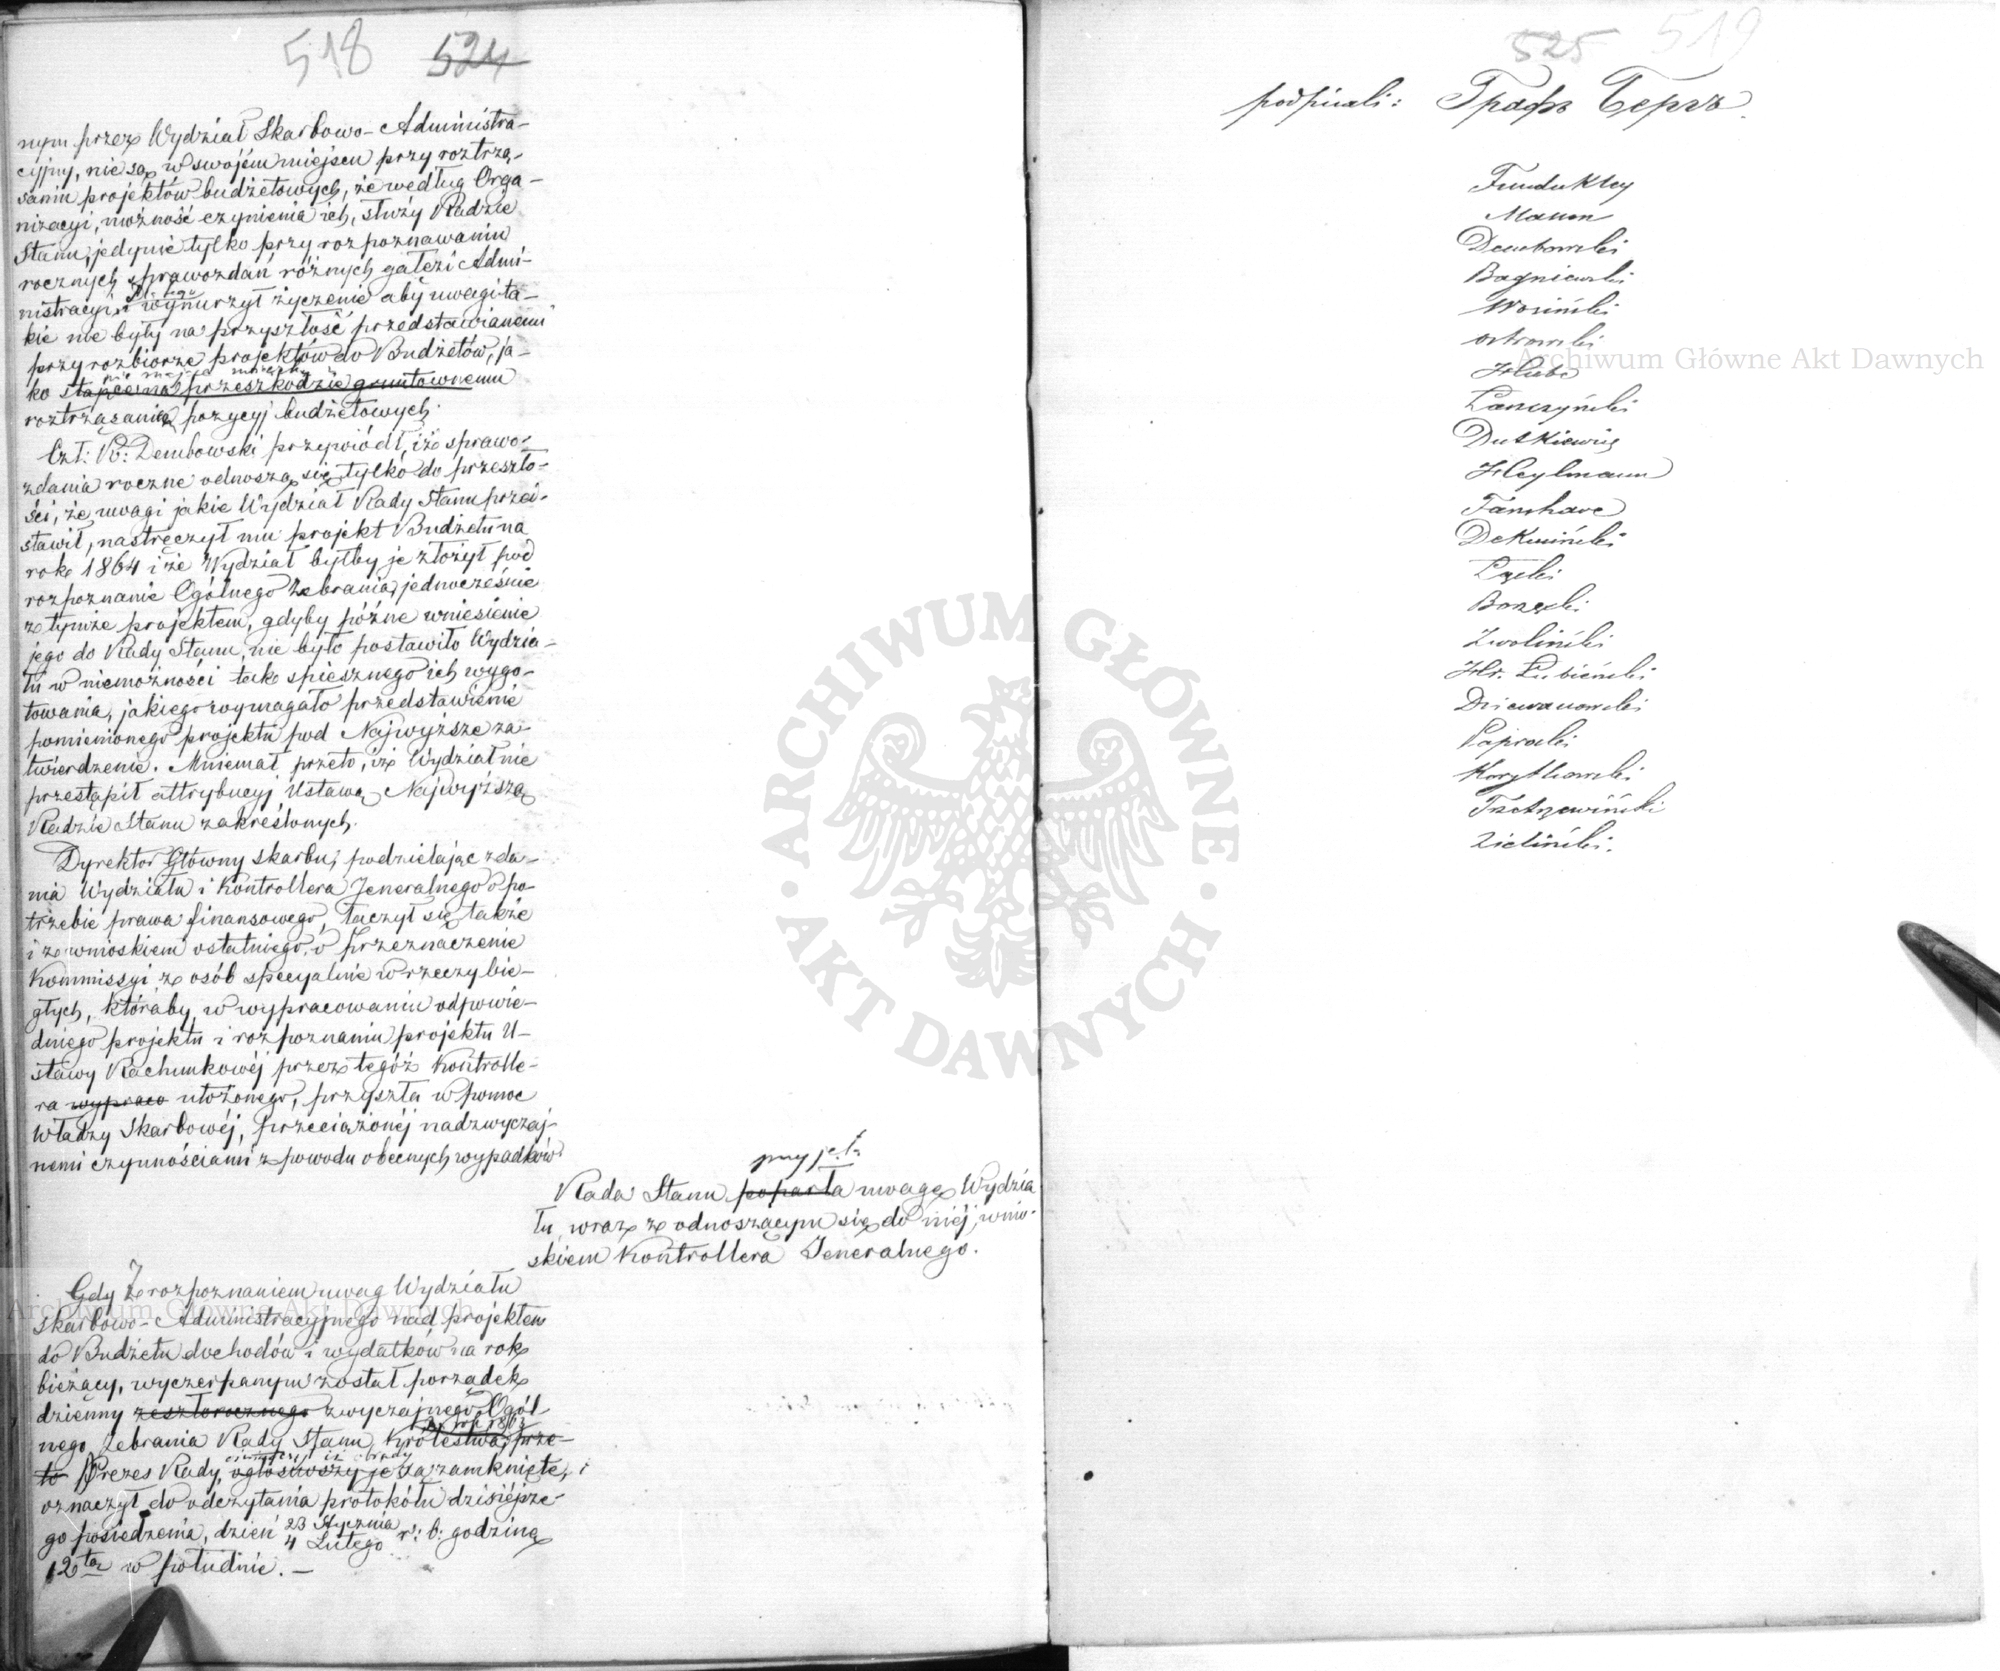 518 524
nym przez Wydział Skarbowo-Administra-
cyjny, nie są w swojém miejscu przy roztrzą-
saniu projektów budżetowych, że według Orga-
nizacyi, możność czynienia ich, służy Radzie
Stanu, jedynie tylko przy rozpoznawaniu
rocznych sprawozdań różnych gałęzi Admi-
nistracyi, wynurzył życzenie aby uwagi ta-
kie nie były na przyszłość przedstawianemi
przy rozbiorze projektów do Budżetów, ja-
nie mające
ko stające na przeszkodzie gruntownemu
roztrząsaniu pozycyj budżetowych.
Czł: R: Dembowski przywiódł, iż sprawo-
zdania roczne odnoszą się tylko do przeszło-
ści, że uwagi jakie Wydział Rady Stanu przed-
stawił, nastręczył mu projekt Budżetu na
rok 1864 i że Wydział byłby je złożył pod
rozpoznanie Ogólnego Zebrania, jednocześnie
z tymże projektem, gdyby późne wniesienie
jego do Rady Stanu, nie było postawiło Wydzia-
łu w niemożności tak spiesznego ich wygo-
towania, jakiego wymagało przedstawienie
pomienionego projektu pod Najwyższe za-
twierdzenie. Mniemał przeto, iż Wydział nie
przestąpił attrybucyj Ustawą Najwyższą
Radzie Stanu zakreślonych.
Dyrektor Główny Skarbu, podzielając zda-
nia Wydziału i Kontrollera Jeneralnego o po-
trzebie prawa finansowego, łączył się także
i z wnioskiem ostatniego, o przeznaczenie
Kommissyi z osób specyalnie w rzeczy bie-
głych, któraby, w wypracowaniu odpowie-
dniego projektu i rozpoznaniu projektu U-
stawy Rachunkowéj przez tegóż Kontrolle-
ra wypraco ułożonego, przyszła w pomoc
Władzy Skarbowéj, przeciążonéj nadzwyczaj-
nemi czynnościami z powodu obecnych wypadków
przyjęła
Rada Stanu poparła uwagę Wydzia
łu, wraz z odnoszącym się do niéj, wnio-
skiem Kontrollera Jeneralnego.
Gdy z rozpoznaniem uwag Wydziału
Skarbowo-Administracyjnego nad projektem
do Budżetu dochodów i wydatków na rok
bieżący, wyczerpanym został porządek
dzienny zeszłorocznego zwyczajnego Ogól
z roku 1863
nego Zebrania Rady Stanu Królestwa, prze-
to Prezes Rady, ogłosiwszy je za zamknięte, i
oznaczył do odczytania protokółu dzisiejsze-
go posiedzenia, dzień 23 Stycznia
4 Lutego r: b: godzinę
12tą w południe. –
525 519
podpisali: Графъ Бергъ.
Funduklej
Dembowski
Bagniewski
Wosiński
Ostrowski
Hube
Łanczyński
Dutkiewicz
Heylmann
Fanshave
Dekuciński
Łęcki
Brzęcki
Zwoliński
Hr. Łubieński
Dziewanowski
Paprocki
Korytkowski
Trzetrzewiński
Zieliński.
Archiwum Główne Akt Dawnych
Archiwum Główne Akt Dawnych
ARCHIWUM GŁÓWNE AKT DAWNYCH